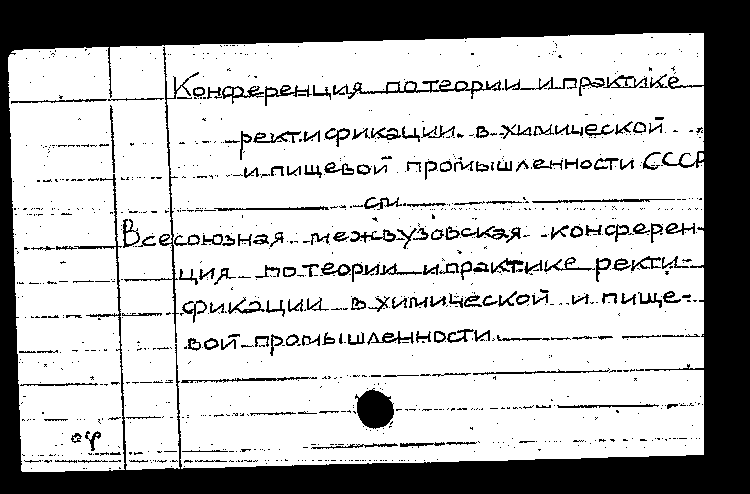 Конференция по теории и практике
ректификации в химической
и пищевой промышленности СССР
см.
Всесоюзная межвузовская конферен-
ция по теории и практике ректи-
фикации в химической и пище-
вой промышленности.